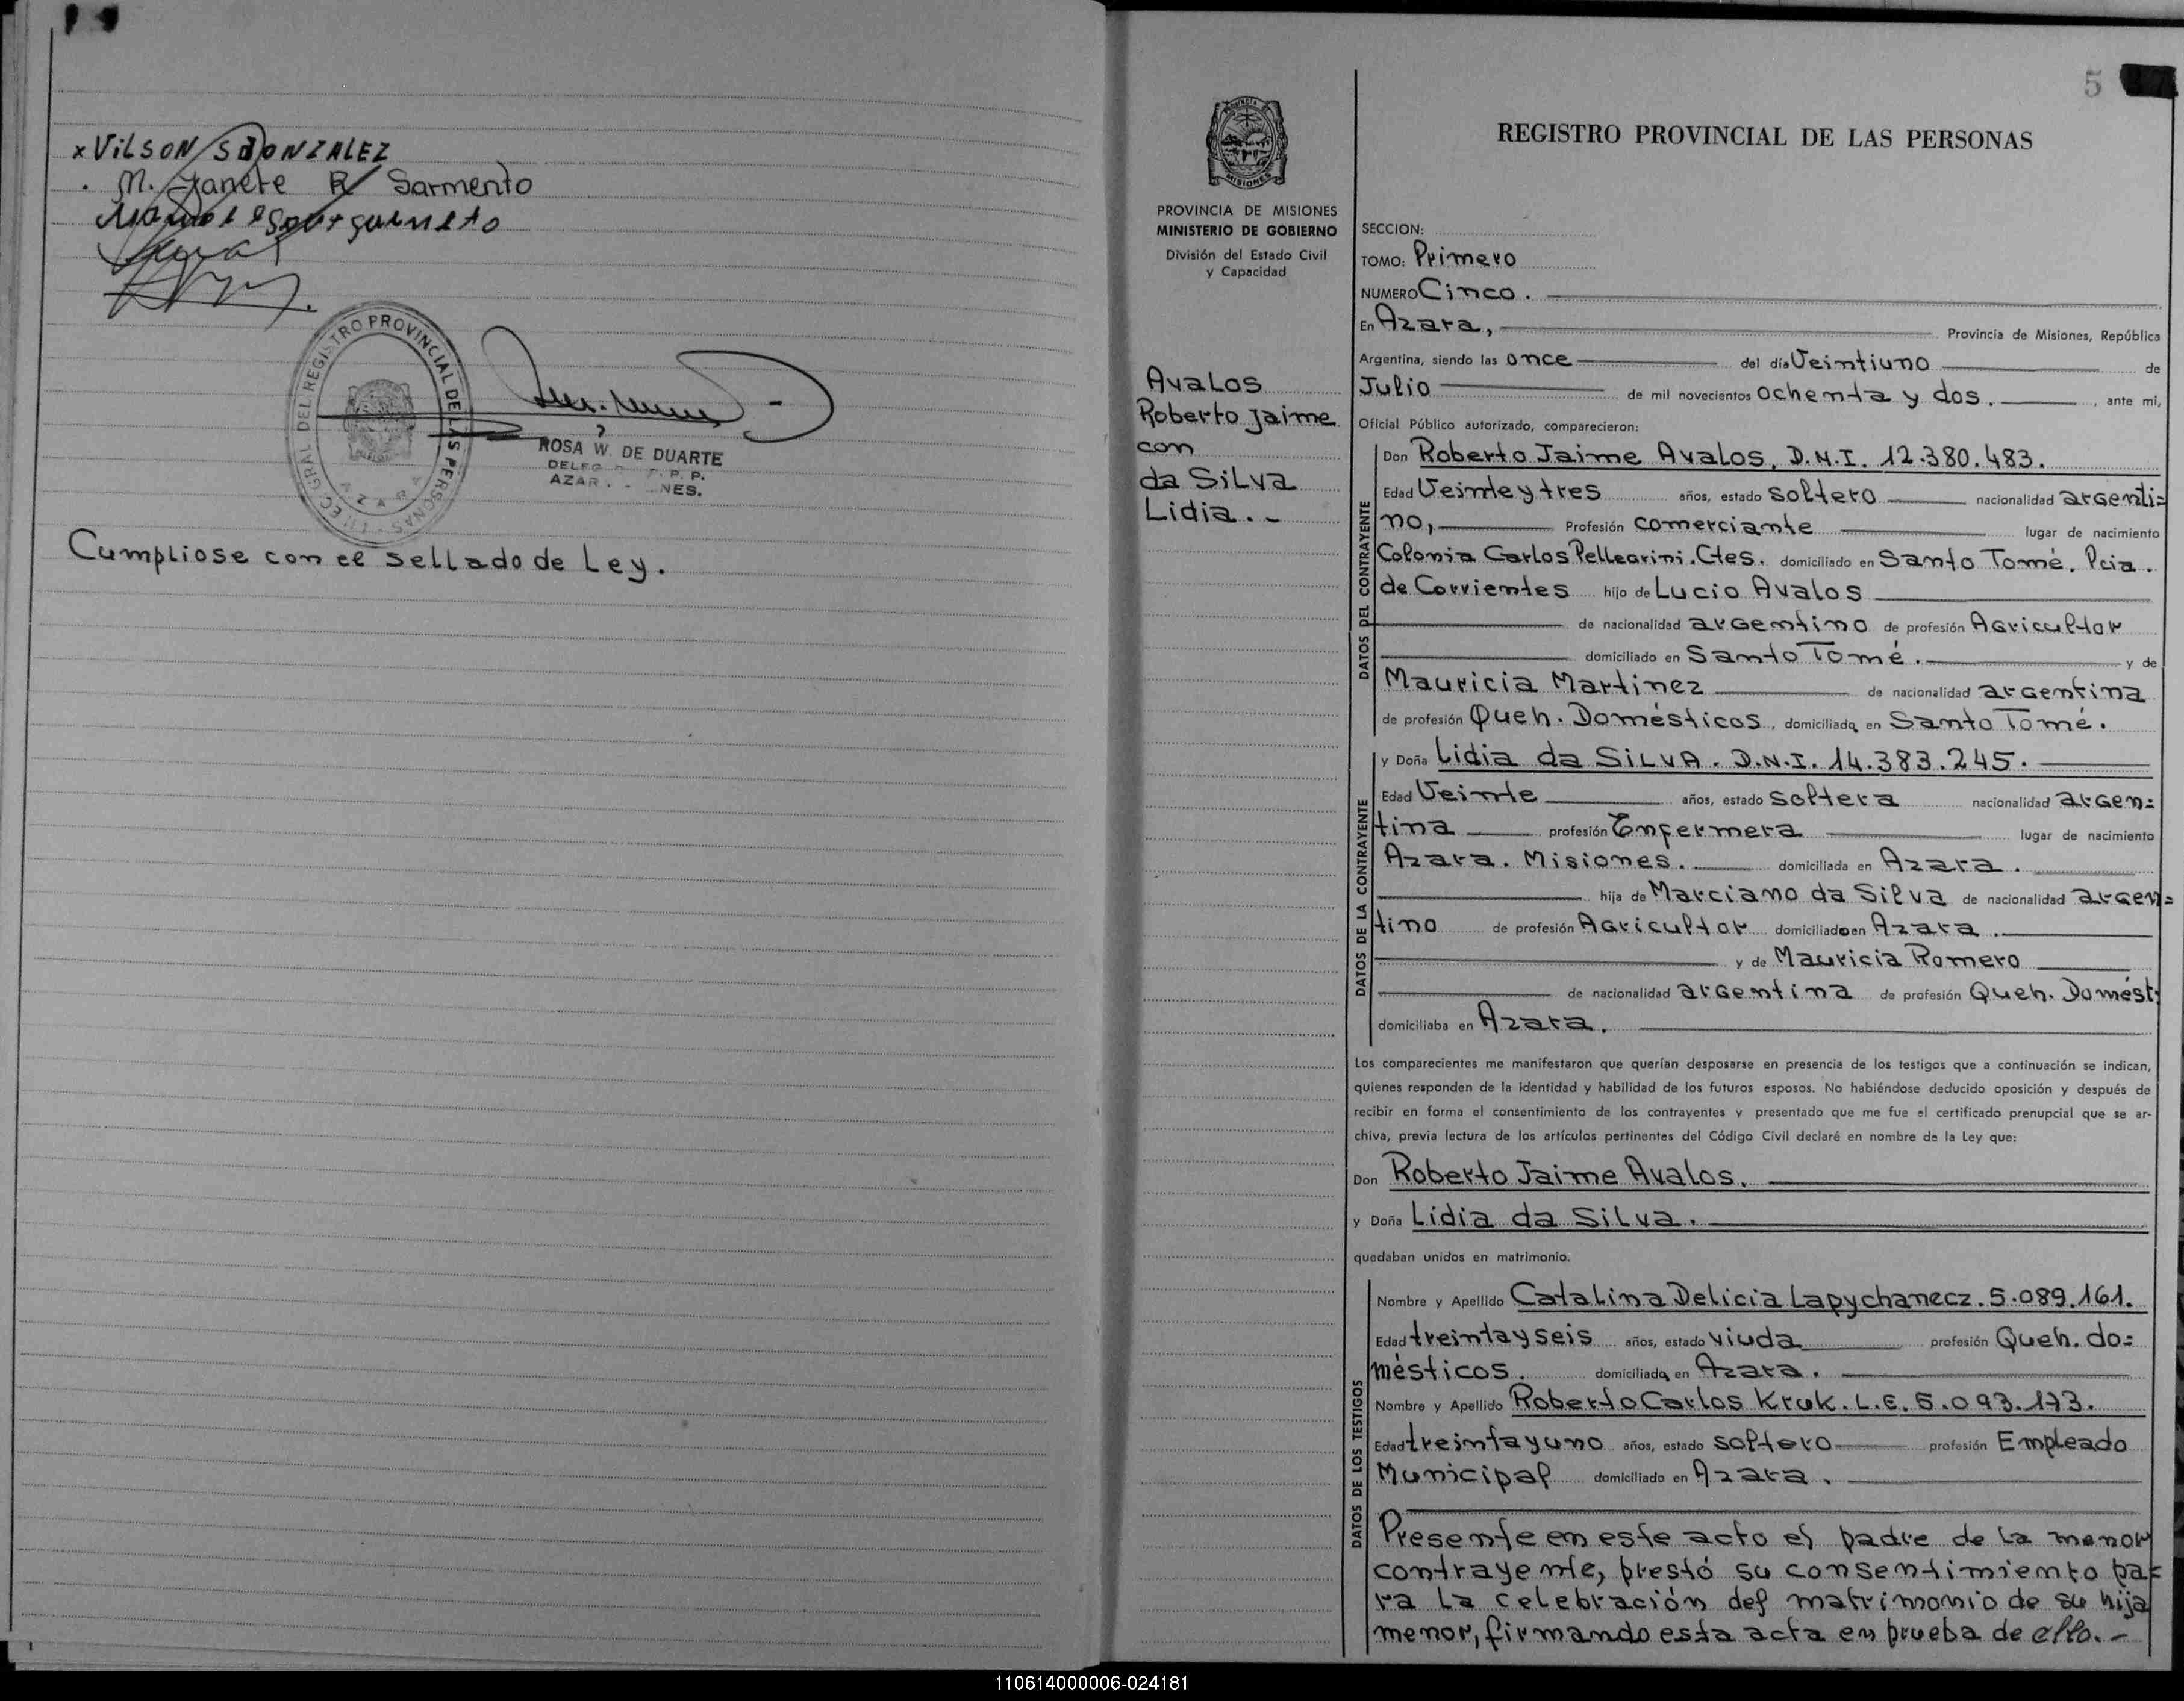 x VILSON S GONZALEZ
. M. Janete R Sarmento
DIREC. GRAL DEL REGISTRO PROVINCIAL DE LAS PERSONAS
AZARA
ROSA W. DE DUARTE
Cumpliose con el sellado de Ley.
5
PROVINCIA DE MISIONES
MINISTERIO DE GOBIERNO
División del Estado Civil
y Capacidad
Avalos
Roberto Jaime
con
da Silva
Lidia. -
REGISTRO PROVINCIAL DE LAS PERSONAS
SECCION:
TOMO: Primero
NUMERO Cinco.
En Azara, Provincia de Misiones, República
Argentina, siendo las once del día Veintiuno de
Julio de mil novecientos ochenta y dos. , ante mi,
Oficial Público autorizado, comparecieron:
DATOS DEL CONTRAYENTE
Don Roberto Jaime Avalos, D.N.I. 12.380.483.
Edad Veinte y tres años, estado soltero nacionalidad argenti=
no, Profesión comerciante lugar de nacimiento
Colonia Carlos Pellegrini. Ctes. domiciliado en Santo Tomé. Pcia.
de Corrientes hijo de Lucio Avalos
de nacionalidad argentino de profesión Agricultor
domiciliado en Santo Tomé. y de
Mauricia Martinez de nacionalidad argentina
de profesión Queh. Domésticos, domiciliada en Santo Tomé.
DATOS DE LA CONTRAYENTE
y Doña Lidia da SILVA. D.N.I. 14.383.245.
Edad Veinte años, estado soltera nacionalidad argen=
tina profesión Enfermera lugar de nacimiento
Azara. Misiones. domiciliada en Azara.
hija de Marciano da Silva de nacionalidad argen=
tino de profesión Agricultor domiciliado en Azara.
y de Mauricia Romero
de nacionalidad argentina de profesión Queh. Domést.
domiciliaba en Azara.
Los comparecientes me manifestaron que querían desposarse en presencia de los testigos que a continuación se indican,
quienes responden de la identidad y habilidad de los futuros esposos. No habiéndose deducido oposición y después de
recibir en forma el consentimiento de los contrayentes y presentado que me fue el certificado prenupcial que se ar-
chiva, previa lectura de los artículos pertinentes del Código Civil declaré en nombre de la Ley que:
Don Roberto Jaime Avalos.
y Doña Lidia da Silva.
quedaban unidos en matrimonio.
DATOS DE LOS TESTIGOS
Nombre y Apellido Catalina Delicia Lapychanecz. 5.089.161.
Edad treinta y seis años, estado viuda profesión Queh. do=
mésticos. domiciliada en Azara.
Nombre y Apellido Roberto Carlos Kruk. L.E. 5.093.173.
Edad treinta y uno años, estado soltero profesión Empleado
Municipal domiciliado en Azara.
Presente en este acto el padre de la menor
contrayente, prestó su consentimiento pa=
ra la celebración del matrimonio de su hija
menor, firmando esta acta en prueba de ello.-
110614000006-024181